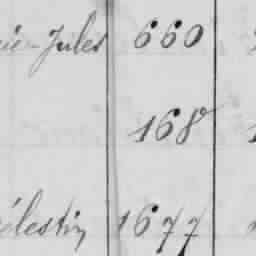 Jules 660
168
élestin 1677